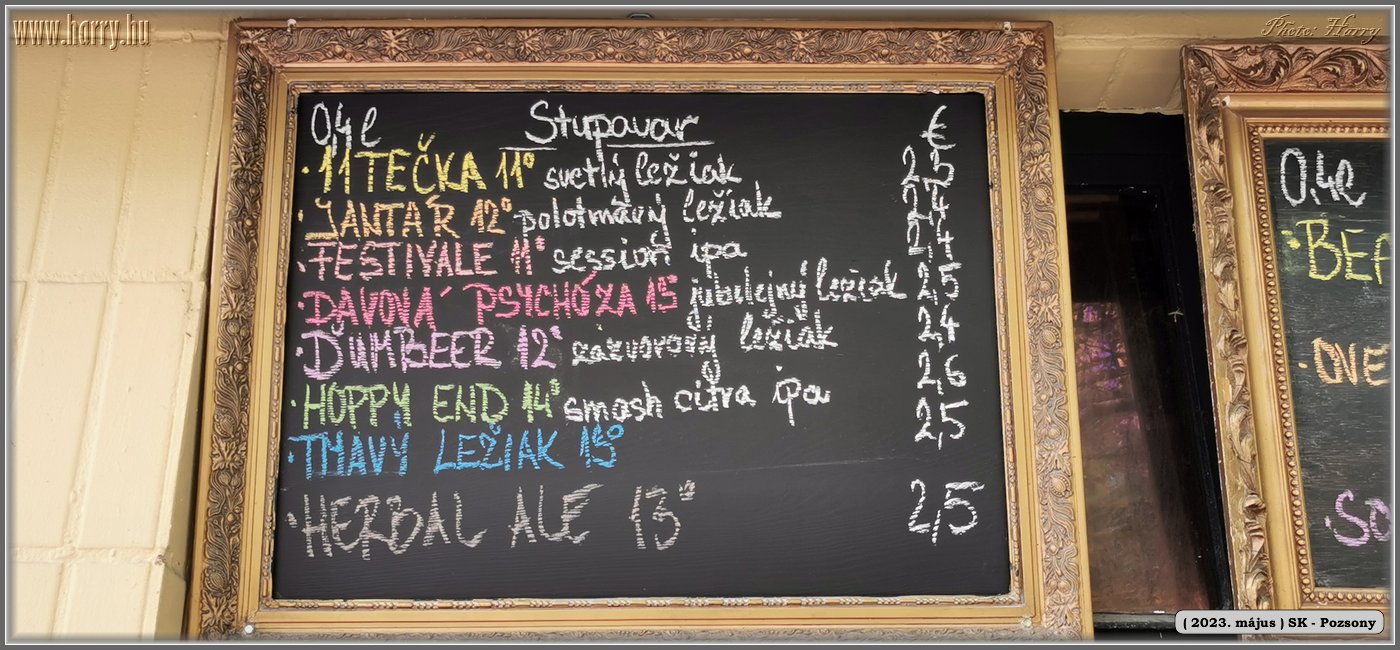 www.harry.hu
Photo: Harry
0,4l Stupavar €
• 11TEČKA 11° svetlý ležiak 2,3
• JANTÁR 12° polotmavý ležiak 2,4
• FESTIVALE 11° session ipa 2,4
• DAVOVÁ PSYCHÓZA 15° jubilejný ležiak 2,5
• ĎUMBEER 12° zázvorový ležiak 2,4
• HOPPY END 14° smash citra ipa 2,6
• TMAVÝ LEŽIAK 15° 2,5
• HERBAL ALE 13° 2,5
0.4l
• BEA
• OVE
• SO
( 2023. május ) SK - Pozsony